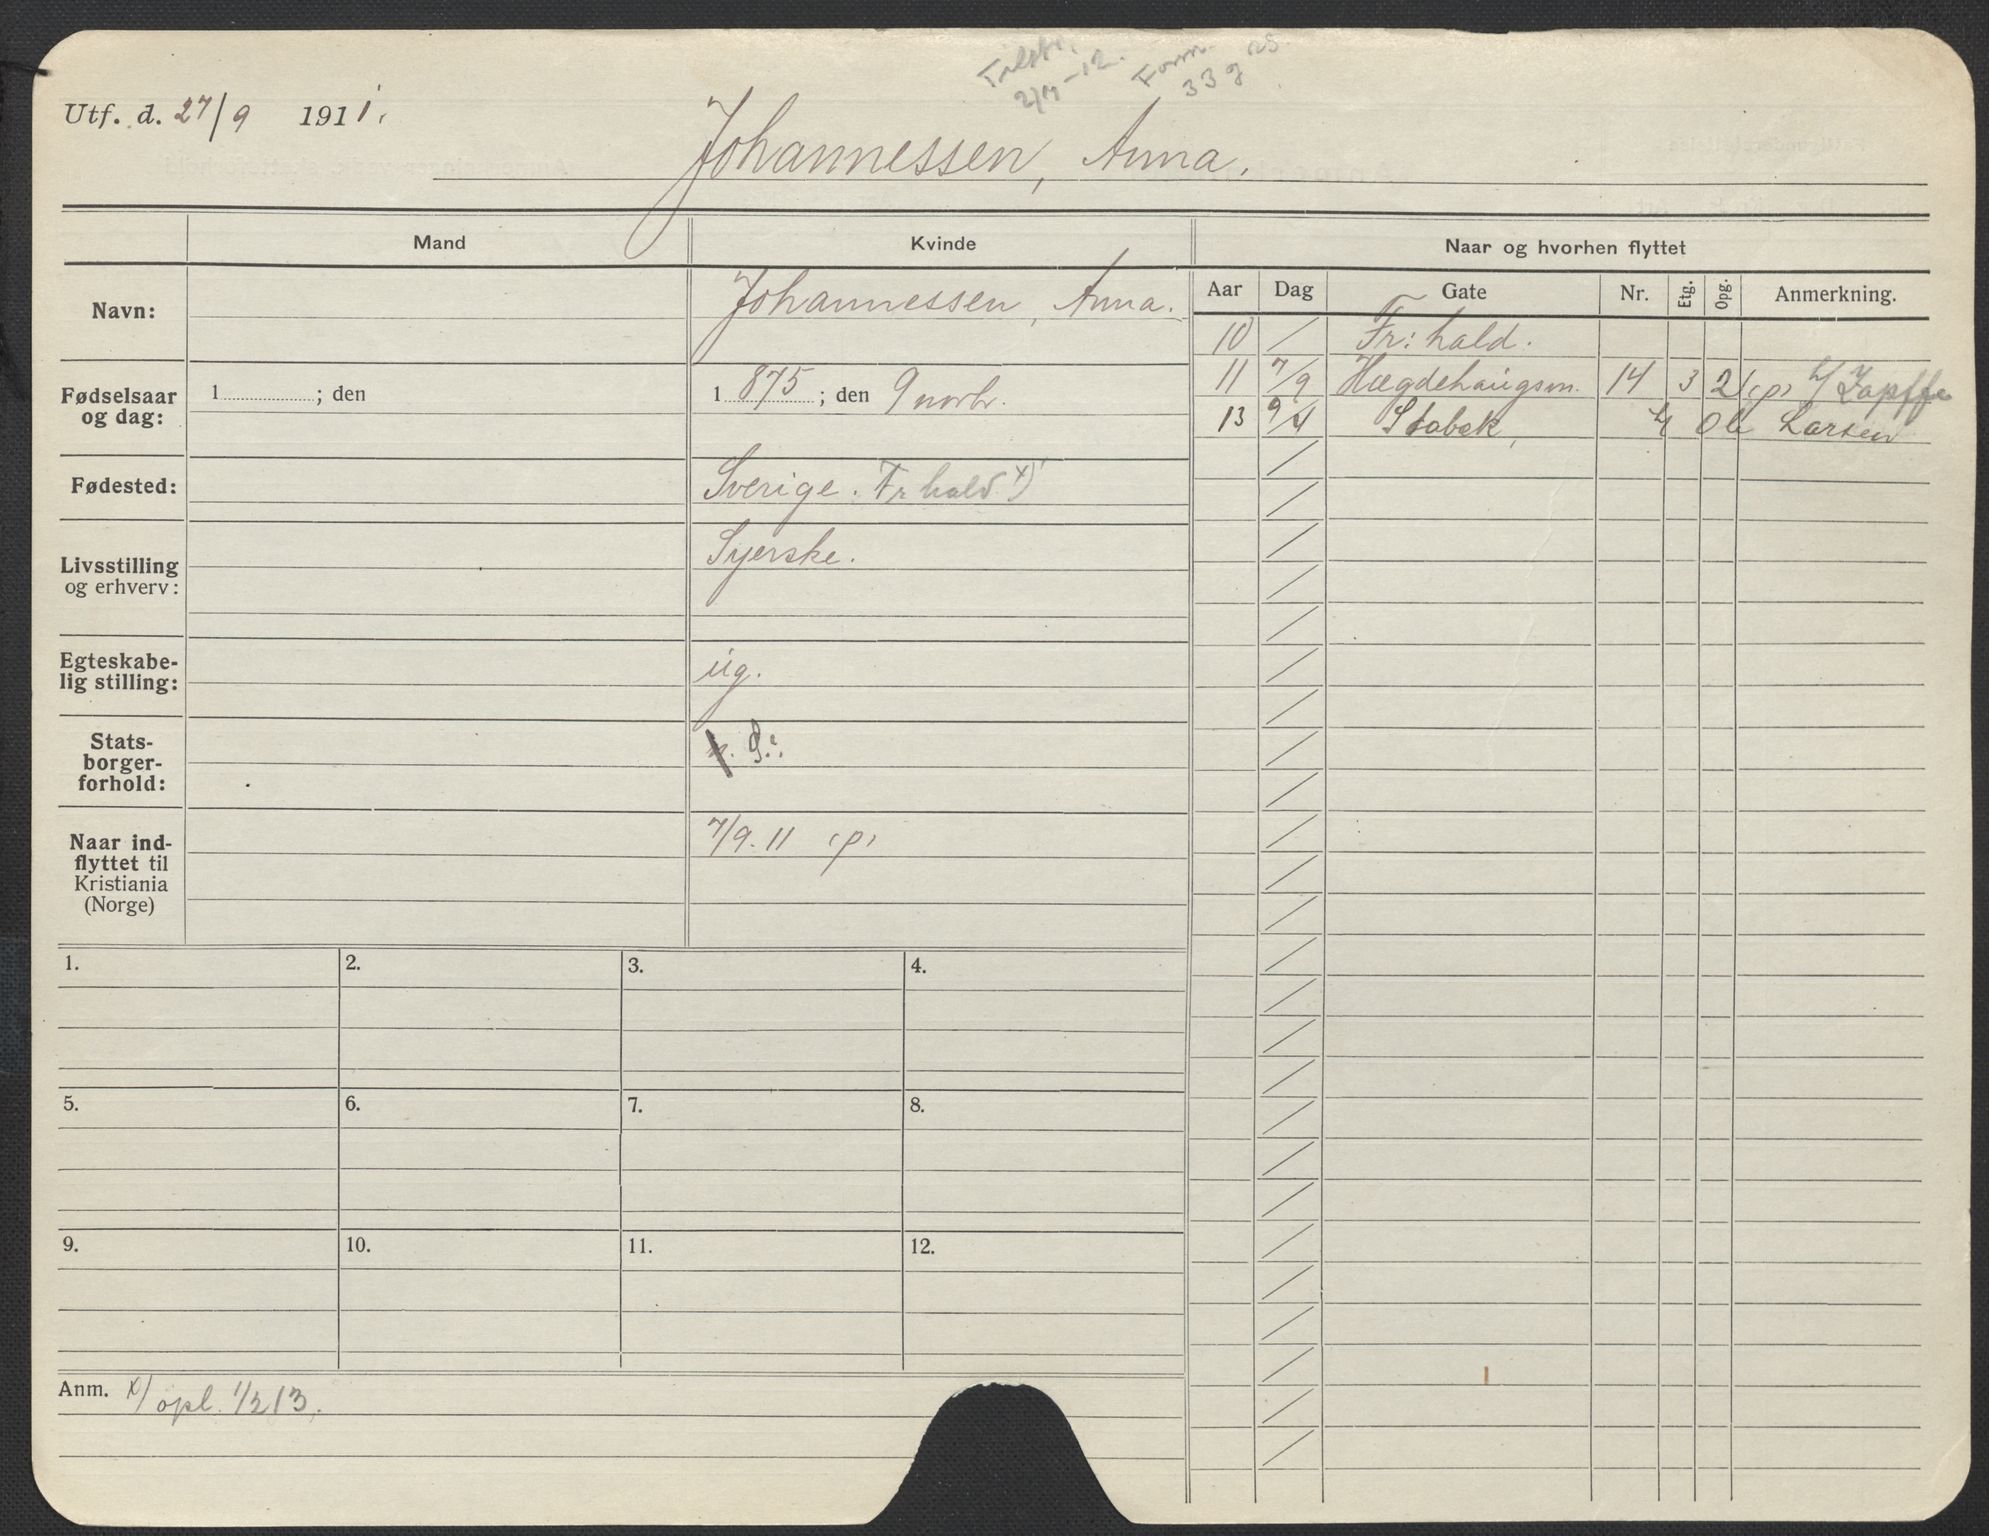 Utf. d. 27/9 1911.
Johannessen, Anna.
Mand
Kvinde
Naar og hvorhen flyttet
Aar Dag Gate Nr. Etg. Opg. Anmerkning.
Navn:
Johannessen, Anna.
Fødselsaar og dag:
1 ; den
1 875 ; den 9 novbr.
Fødested:
Sverige. Fr hald x)
Livsstilling og erhverv:
Syerske.
Egteskabe-
lig stilling:
ug.
Stats-
borger-
forhold:
Naar ind-
flyttet til
Kristiania
(Norge)
7/9. 11 (p)
10 Fr: hald.
11 7/9 Hægdehaugsvn. 14 3 2 (p) h/ Zapffe
13 9/4 Stabæk, h/ Ole Larsen
1.
2.
3.
4.
5.
6.
7.
8.
9.
10.
11.
12.
Anm. x/ opl. 1/2 13.